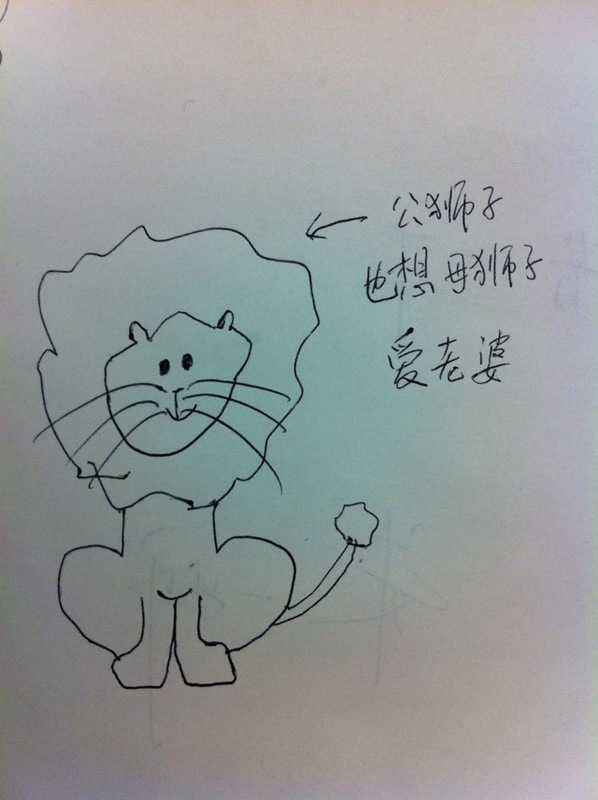 公狮子
也想母狮子
爱老婆